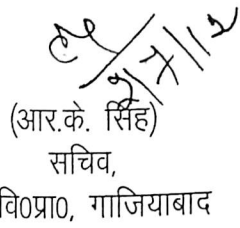 2/7/12
(आर.के. सिंह)
सचिव,
वि0प्रा0, गाजियाबाद